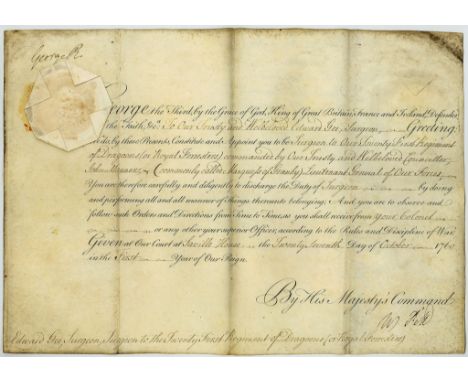 George R
George the Third, by the Grace of God, King of Great Britain, France and Ireland, Defender
of the Faith, &c. To Our Trusty and Welbeloved Edward Gee, Surgeon Greeting:
We do, by these Presents, Constitute and Appoint you to be Surgeon to Our Twenty First Regiment
of Dragoons (or Royal Foresters) commanded by Our Trusty and Welbeloved Councellor
John Manners (Commonly called Marquess of Granby) Lieutenant General of Our Forces
You are therefore carefully and diligently to discharge the Duty of Surgeon by doing
and performing all and all manner of Things thereunto belonging; And you are to observe and
follow such Orders and Directions from Time to Time as you shall receive from your Colonel
or any other your superior Officer, according to the Rules and Discipline of War
Given at Our Court at Savile House the Twenty Seventh Day of October 1760
in the First Year of Our Reign.
By His Majesty's Command
W Pitt
Edward Gee, Surgeon, Surgeon to the Twenty First Regiment of Dragoons (or Royal Foresters)